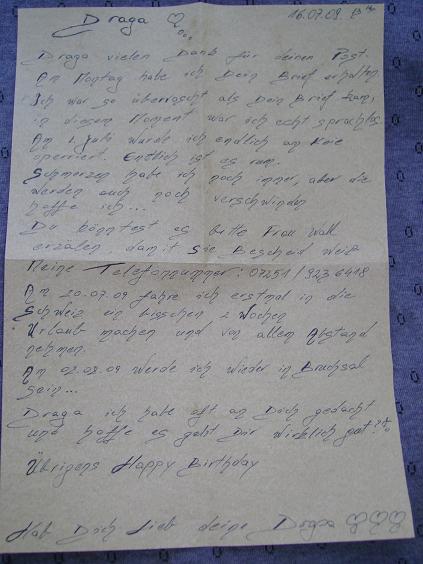 Draga
16.07.09.
Draga vielen Dank für deinen Post.
Am Montag habe ich Dein Brief erhalten
Ich war so überrascht als Dein Brief kam,
in diesem Moment war ich echt sprachlos.
Am 1. Juli wurde ich endlich am Knie
operriert. Entlich ist es rum.
Schmerzen habe ich noch immer, aber die
werden auch noch verschwinden
hoffe ich...
Du könntest es bitte Frau Wall
erzälen damit Sie Bescheid weiß
Meine Telefonnummer: 07251/923 6418
Am 20.07.09 fahre ich erstmal in die
Schweiz ein bisschen 2 Wochen
Urlaub machen und von allem Abstand
nehmen.
Am 02.08.09 werde ich wieder in Bruchsal
sein...
Draga ich habe oft an Dich gedacht
und hoffe es geht Dir wirklich gut?!
Übrigens Happy Birthday
Hab Dich Lieb deine Draga